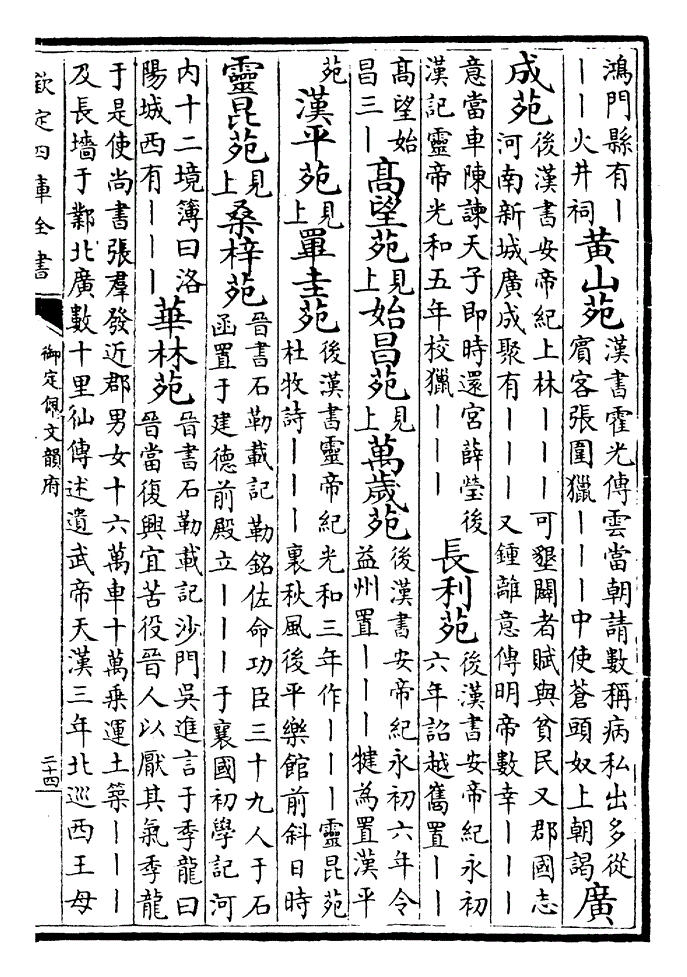 鴻門縣有丨丨丨火井祠黄山苑漢書霍光傳雲當朝請數稱病私出多從賔客張圍獵丨丨丨中使蒼頭奴上朝謁廣
成苑後漢書安帝紀上林丨丨丨可墾闢者賦與貧民又郡國志河南新城廣成聚有丨丨丨又鍾離意傳明帝數幸丨丨丨
意當車陳諫天子即時還宮薛瑩後漢記靈帝光和五年校獵丨丨丨長利苑後漢書安帝紀永初六年詔越嶲置丨丨
髙望始昌三丨髙望苑見上始昌苑見上萬歲苑後漢書安帝紀永初六年令益州置丨丨丨犍為置漢平
苑漢平苑見上罼圭苑後漢書靈帝紀光和三年作丨丨丨靈昆苑杜牧詩丨丨丨裏秋風後平樂館前斜日時
靈昆苑見上桑梓苑晉書石勒載記勒銘佐命功臣三十九人于石函置于建德前殿立丨丨丨于襄國初學記河
内十二境簿曰洛陽城西有丨丨丨華林苑晉書石勒載記沙門吳進言于季龍曰晉當復興宜苦役晉人以厭其氣季龍
于是使尚書張羣發近郡男女十六萬車十萬乗運土築丨丨丨及長墻于鄴北廣數十里仙傳述遺武帝天漢三年北巡西王母
欽定四庫全書
御定佩文韻府
二十四